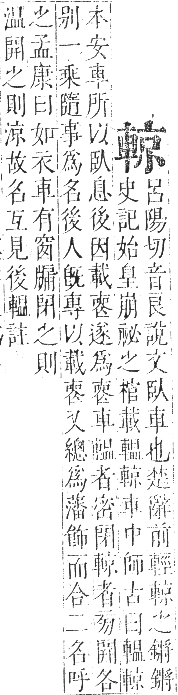 輬
呂陽切音良說文臥車也楚辭前輕輬之鏘鏘
史記始皇崩祕之棺載轀輬車中師古曰轀輬
本安車所以臥息後因載喪遂爲喪車轀者密閉輬者旁開各
別一乗隨事爲名後人旣專以載喪又總爲藩飾而合二名呼
之孟康曰如衣車有窗牖閉之則
溫開之則涼故名互見後轀註